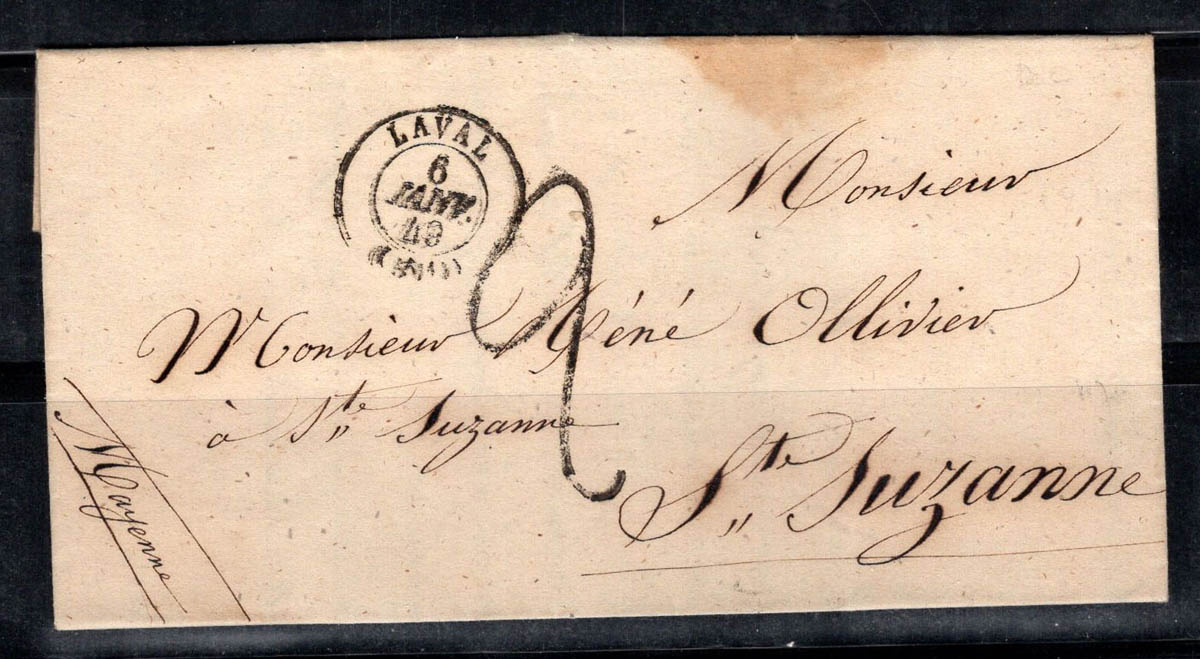 LAVAL
6
JANV.
49
2
Monsieur
Monsieur Réné Ollivier
à Ste Suzanne
Ste Suzanne
Mayenne